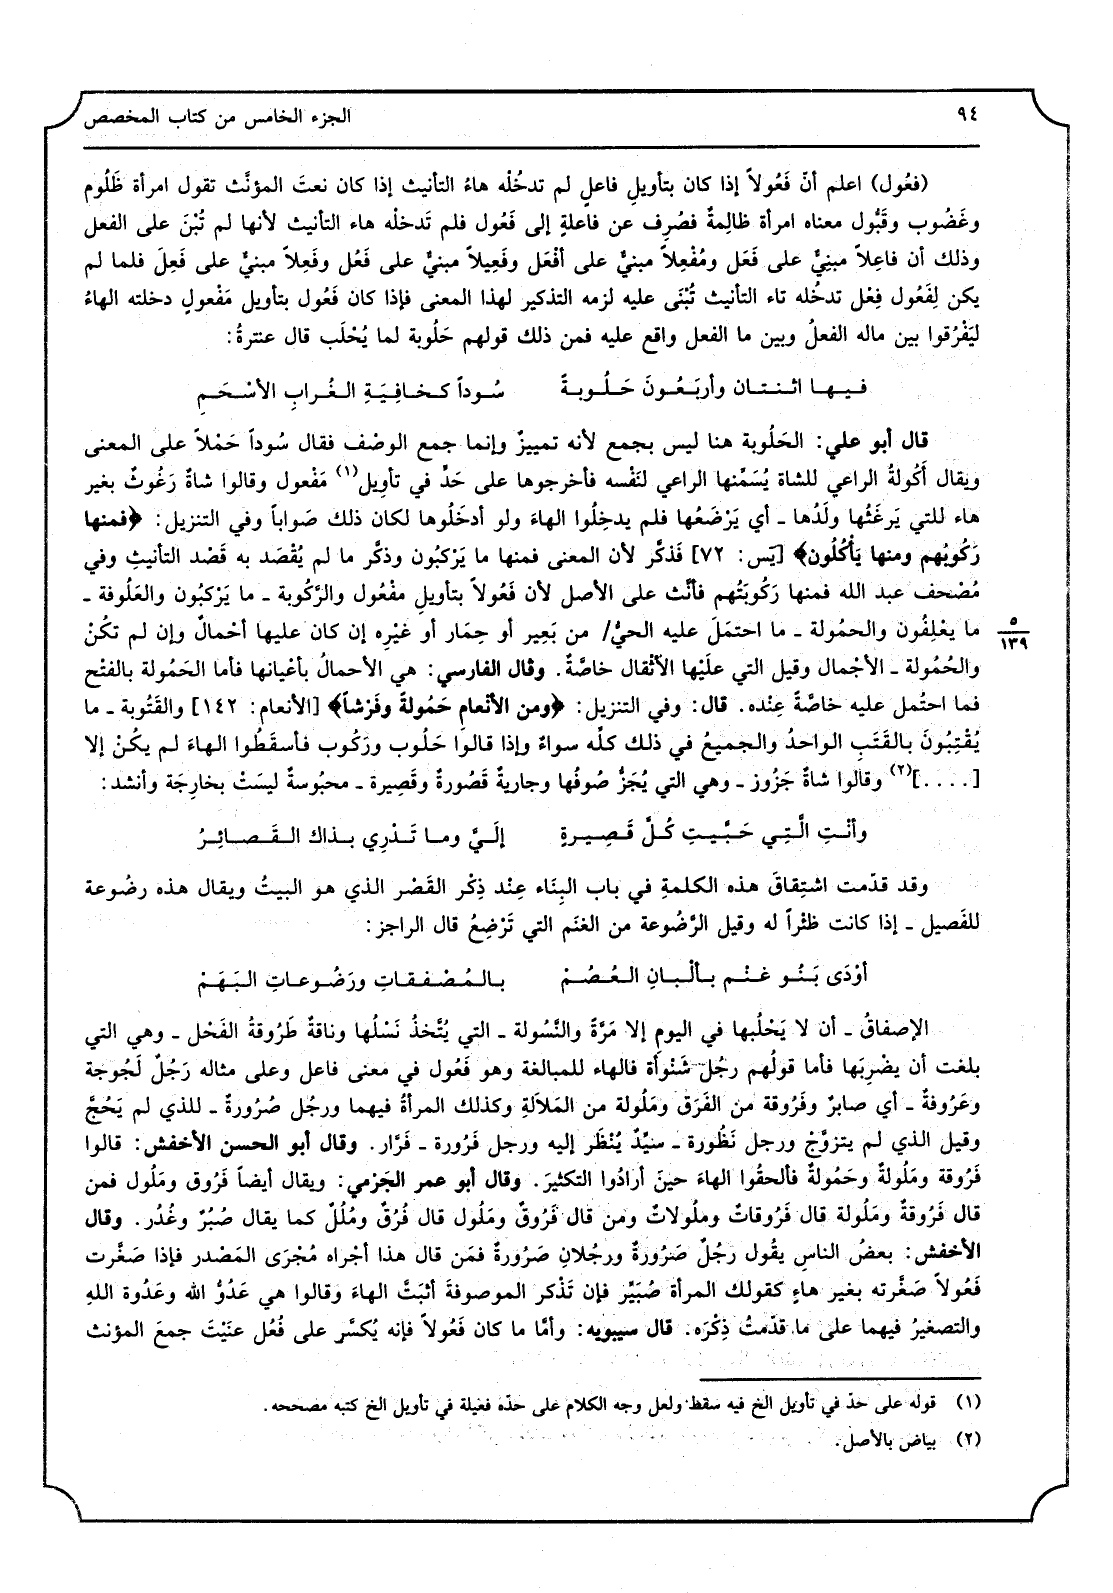 ٩٤ الجزء الخامس من كتاب المخصص
(فعُول) اعلم أنّ فَعُولاً إذا كان بتأويلِ فاعلٍ لم تدخُلْه هاءُ التأنيث إذا كان نعتَ المؤنَّث تقول امرأة ظَلُوم
وغَضُوب وقَبُّول معناه امرأة ظالِمةٌ فصُرِف عن فاعلةٍ إلى فَعُول فلم تَدخلْه هاء التأنيث لأنها لم تُبْنَ على الفعل
وذلك أن فاعِلاً مبنِيٌّ على فَعَل ومُفْعِلاً مبنيٌّ على أفْعَل وفَعِيلاً مبنيٌّ على فَعُل وفَعِلاً مبنيٌّ على فَعِلَ فلما لم
يكن لِفَعُول فِعْل تدخُله تاء التأنيث تُبْنَى عليه لزمه التذكير لهذا المعنى فإذا كان فَعُول بتأويل مَفْعولٍ دخلته الهاءُ
ليَفْرُقوا بين ماله الفعلُ وبين ما الفعل واقع عليه فمن ذلك قولهم حَلُوبة لما يُحْلَب قال عنترةُ:
فيها اثنتان وأربَعُونَ حَلُوبةً سُوداً كخافِيَةِ الغُرابِ الأسْحَمِ
قال أبو علي: الحَلُوبة هنا ليس بجمع لأنه تمييزٌ وإنما جمع الوصْف فقال سُوداً حَمْلاً على المعنى
ويقال أَكُولةُ الراعي للشاة يُسَمِّنها الراعي لنَفْسه فأخرجوها على حَدِّ في تأوِيل(١) مَفْعول وقالوا شاةٌ رَغُوثٌ بغير
هاء للتي يَرغَثُها ولَدُها ـ أي يَرْضَعُها فلم يدخِلُوا الهاءَ ولو أدخَلُوها لكان ذلك صَواباً وفي التنزيل: ﴿فمنها
رَكُوبُهم ومنها يَأكُلُون﴾ [يَس: ٧٢] فَذكَّر لأن المعنى فمنها ما يَرْكبُون وذكَّر ما لم يُقْصَد به قَصْد التأنيثِ وفي
مُصْحف عبد الله فمنها رَكُوبَتُهم فأنَّث على الأصل لأن فَعُولاً بتأويلِ مفْعُول والرَّكُوبة ـ ما يَرْكبُون والعَلُوفة ـ
ما يعْلِفُون والحمُولة ـ ما احتمَلَ عليه الحيُّ/ من بَعِير أو حِمَار أو غيْرِه إن كان عليها أحْمالٌ وإن لم تكُنْ
٥
١٣٩
والحُمُولة ـ الأحْمال وقيل التي علَيْها الأثْقال خاصَّةً. وقال الفارسي: هي الأحمالُ بأعْيانها فأما الحَمُولة بالفتْح
فما احتُمل عليه خاصَّةً عِنْده. قال: وفي التنزيل: ﴿ومن الأنعامِ حَمُولةً وفَرْشاً﴾ [الأنعام: ١٤٢] والقَتُوبة ـ ما
يُقْتِبُونَ بالقَتَبِ الواحدُ والجميعُ في ذلك كلِّه سواءٌ وإذا قالوا حَلُوب ورَكُوب فأسقَطُوا الهاءَ لم يكُنْ إلا
[....](٢) وقالوا شاةٌ جَزُوز ـ وهي التي يُجَزُّ صُوفُها وجاريةٌ قَصُورةٌ وقَصِيرة ـ محبُوسةٌ ليسَتْ بخارِجَة وأنشد:
وأنْتِ الَّتِي حَبَّبتِ كُلَّ قَصِيرةٍ إلَيَّ وما تَدْرِي بذاك القَصائِرُ
وقد قدّمت اشتِقاقَ هذه الكلمةِ في باب البِنَاء عِند ذِكْر القَصْر الذي هو البيتُ ويقال هذه رضُوعة
للفَصيل ـ إذا كانت ظئْراً له وقيل الرَّضُوعة من الغنَم التي تَرْضِعُ قال الراجز:
أوْدَى بَنُو غنْم بألْبانِ العُصُمْ بالمُصْفقاتِ ورَضُوعاتِ البَهَمْ
الإصفاقُ ـ أن لا يَحْلُبها في اليومِ إلا مَرَّةً والنَّسُولة ـ التي يُتَّخذُ نَسْلُها وناقةٌ طَرُوقةُ الفَحْل ـ وهي التي
بلغت أن يضْرِبَها فأما قولُهم رجُل شَنُوأة فالهاء للمبالغة وهو فَعُول في معنى فاعل وعلى مثاله رَجُلٌ لَجُوجَة
وعَرُوفةٌ ـ أي صابرٌ وفَرُوقة من الفَرَق ومَلُولة من المَلاَلةِ وكذلك المرأةُ فيهما ورجُل صُرُورةٌ ـ للذي لم يَحُجَّ
وقيل الذي لم يتزوَّجْ ورجل نَظُورة ـ سيِّدٌ يُنْظَر إليه ورجل فَرُورة ـ فَرَّار. وقال أبو الحسن الأخفش: قالوا
فَرُوقة ومَلُولةٌ وحَمُولةٌ فألحقُوا الهاءَ حينَ أرادُوا التكثيرَ. وقال أبو عمر الجَرْمي: ويقال أيضاً فَرُوق ومَلُول فمن
قال فَرُوقةٌ ومَلُولة قال فَرُوقاتٌ وملُولاتٌ ومن قال فَرُوقٌ ومَلُول قال فُرُقٌ ومُلُلٌ كما يقال صُبُرٌ وغُدُر. وقال
الأخفش: بعضُ الناسِ يقُول رجُلٌ صَرُورةٌ ورجُلانِ صَرُورةٌ فمَن قال هذا أجْراه مُجْرَى المَصْدر فإذا صَغَّرت
فَعُولاً صَغَّرته بغير هاءٍ كقولك المرأة صُبَيِّر فإن تَذْكر الموصوفةَ أثبَتَّ الهاءَ وقالوا هي عَدُوُّ الله وعَدُوة اللهِ
والتصغيرُ فيهما على ما قدّمتُ ذِكْرَه. قال سيبويه: وأمَّا ما كان فَعُولاً فإنه يُكسَّر على فُعُل عنَيْتَ جمعَ المؤنث
(١) قوله على حدّ في تأويل الخ فيه سقط ولعل وجه الكلام على حدّه فعيلة في تأويل الخ كتبه مصححه.
(٢) بياض بالأصل.